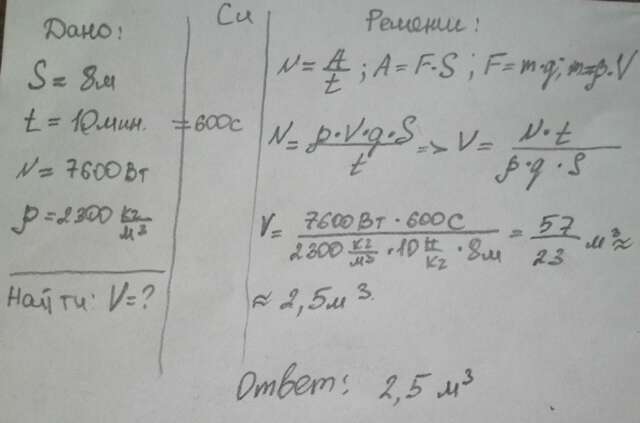 Дано:
S = 8м
t = 10мин.
N = 7600 Вт
ρ = 2300 кг/м³
Найти: V = ?
Си
= 600С
Решении:
N = A/t ; A = F·S ; F = m·g; m=ρ·V
N = ρ·V·g·S/t => V = N·t/ρ·g·S
V = 7600Вт · 600С/2300 кг/м³ · 10 Н/кг · 8м = 57/23 м³ ≈
≈ 2,5м³.
Ответ: 2,5 м³